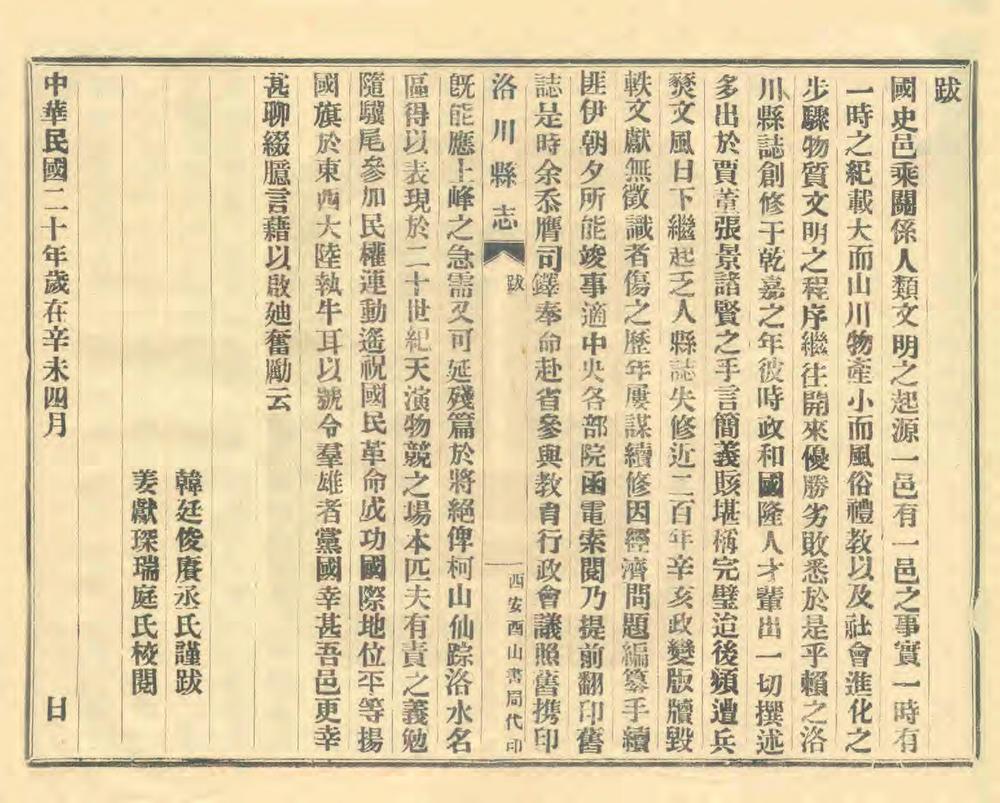 跋
國史邑乘關係人類文明之起源一邑有一邑之事實一時有
一時之紀載大而山川物產小而風俗禮教以及社會進化之
步驟物質文明之程序繼往開來優勝劣敗悉於是乎賴之洛
川縣誌創修于乾嘉之年彼時政和國隆人才輩出一切撰述
多出於賈董張景諸賢之手言簡義賅堪稱完璧迨後頻遭兵
燹文風日下繼起乏人縣誌失修近二百年辛亥政變版牘毀
軼文獻無徵識者傷之歷年屢謀續修因經濟問題編纂手續
匪伊朝夕所能竣事適中央各部院函電索閱乃提前翻印舊
誌是時余忝膺司鐸奉命赴省參與教育行政會議照舊携印
洛川縣志 跋 西安酉山書局代印
既能應上峰之急需又可延殘篇於將絕俾柯山仙踪洛水名
區得以表現於二十世紀天演物競之場本匹夫有責之義勉
隨驥尾參加民權運動遙祝國民革命成功國際地位平等揚
國旗於東西大陸執牛耳以號令羣雄者黨國幸甚吾邑更幸
甚聊綴臆言藉以啟廸奮勵云
韓廷俊賡丞氏謹跋
姜獻琛瑞庭氏校閱
中華民國二十年歲在辛未四月 日